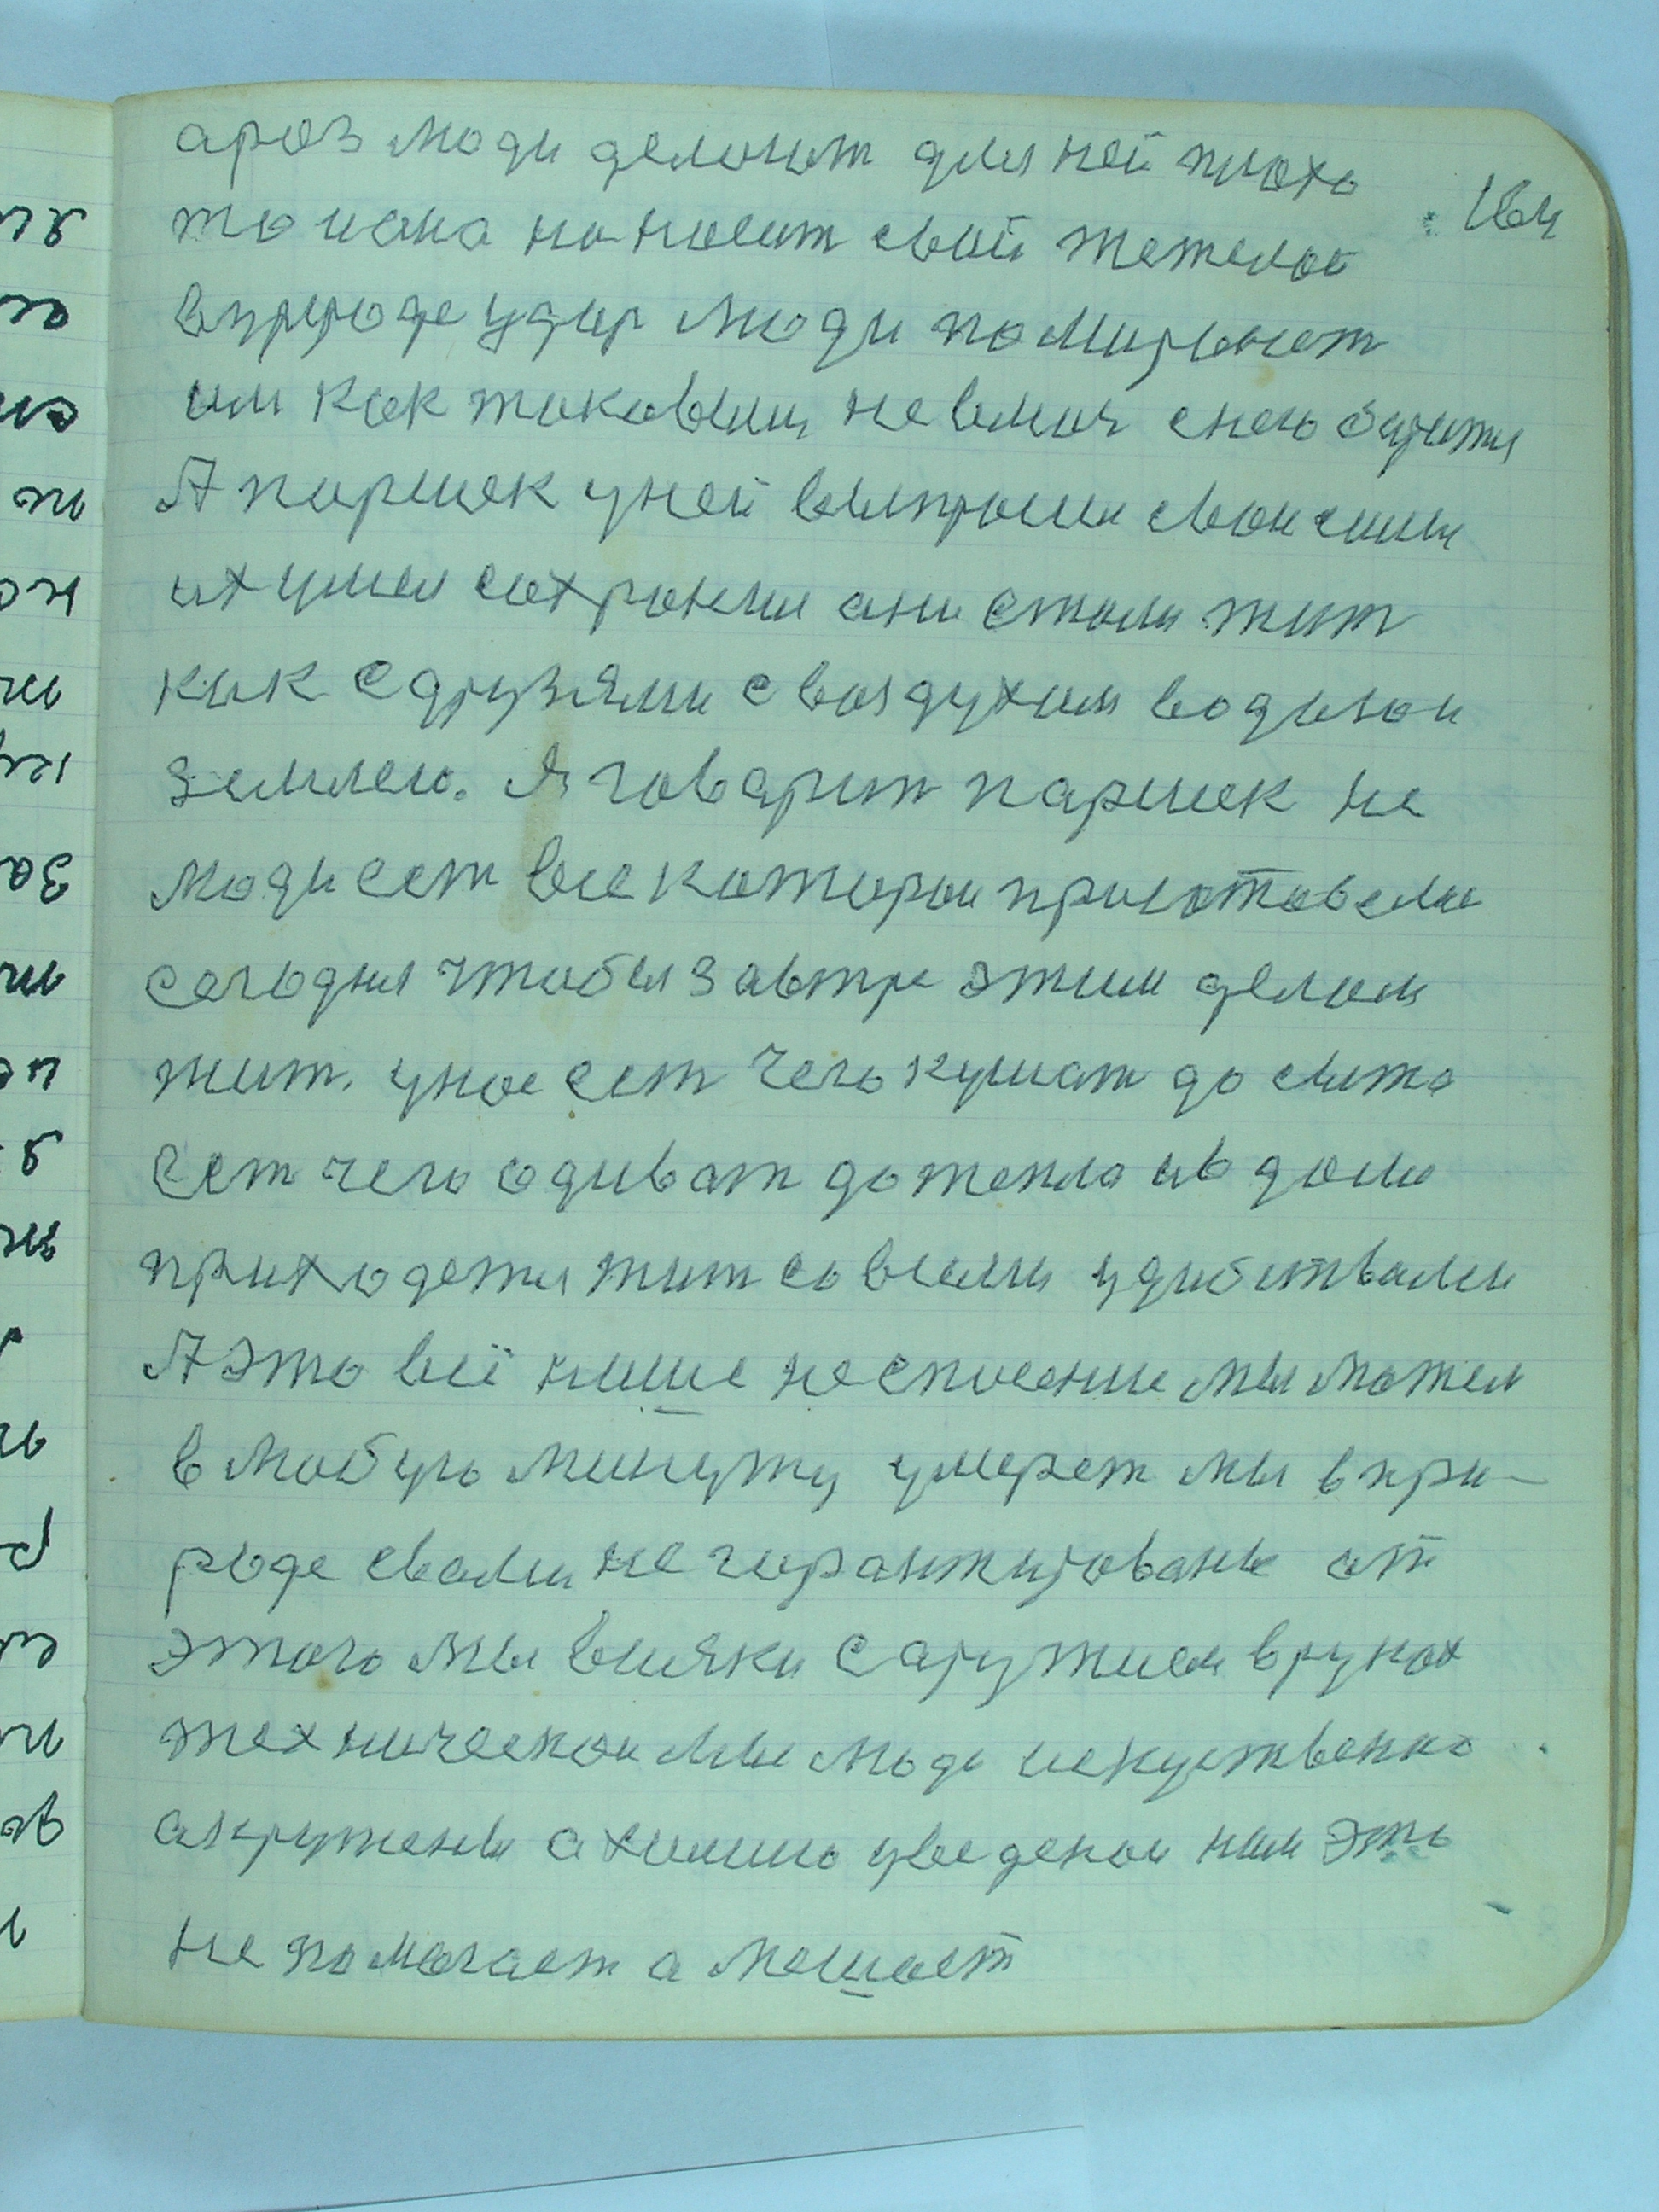 164
а роз люди делоют для ней плохо
то и она наносит свой тежелой
в природе удар люди помирают
им как таковыим не в мич с него
А паршек у ней выпросил свои силы
их умел сохронил они стали жит
как с друзями с воздухом водою и
землею. Я говарит паршек не
люди ест все которои приготовели
сегодня чтобы завтре этим делом
жит. у нас ест чего кушат до сыта
ест чего одиват до тепла и в доми
приходетя жит со всеми удобствами
А это всё наше не спосение мы можем
в любую минуту умерет мы в при-
роде своми не гарантированы от
этого мы всияки с аружием в руках
техническои мы люди искуственно
акружены а химиию уведенои нам это
не помогает а мешает